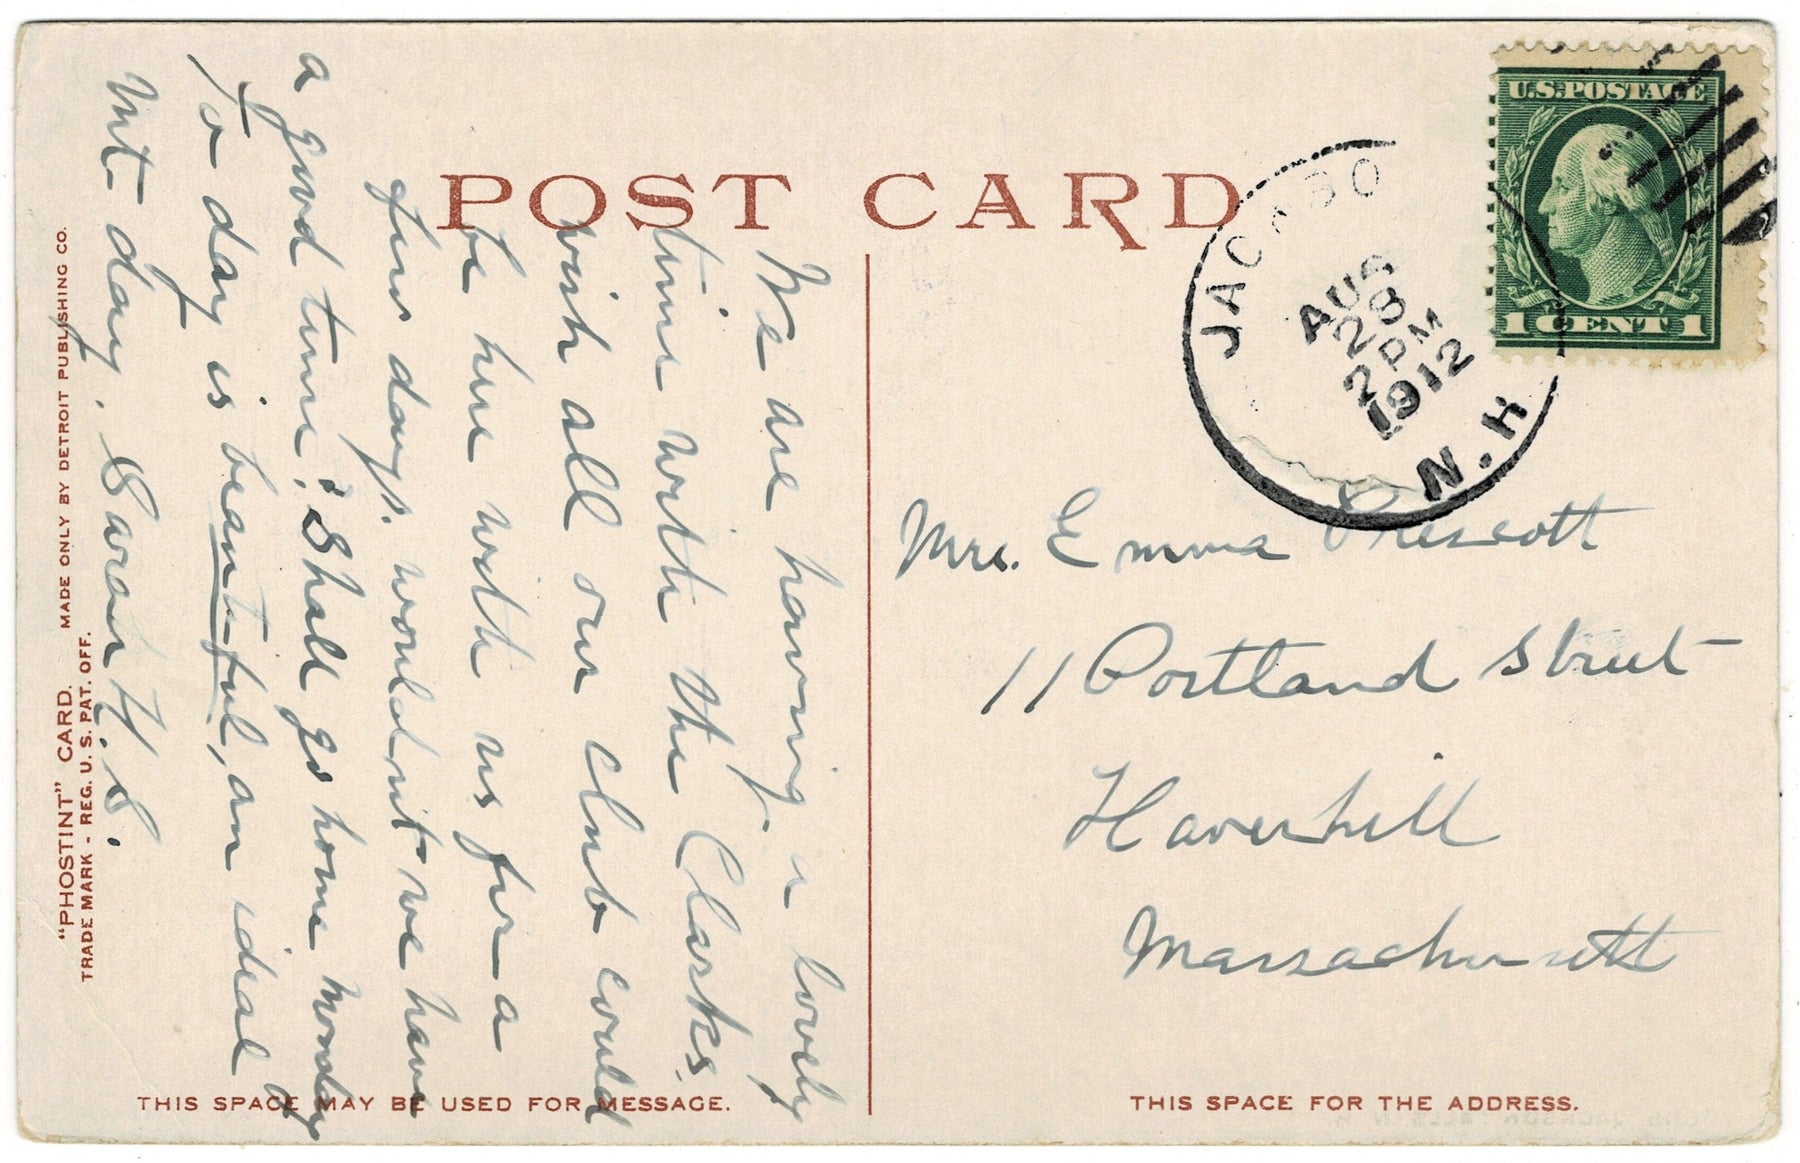 POST CARD
U.S. POSTAGE
1 CENT 1
AUG
28
2 PM
1912
N.H.
We are having a lovely
time with the Clarks.
wish all our club could
be here with us for a
few days. wouldn't we have
a good time? Shall go home Monday
To day is beautiful, an ideal
Mt. day. Sarah H. S.
Mrs. Emma Prescott
11 Portland Street
Haverhill
Massachusetts
"PHOSTINT" CARD. MADE ONLY BY DETROIT PUBLISHING CO.
TRADE MARK - REG. U. S. PAT. OFF.
THIS SPACE MAY BE USED FOR MESSAGE.
THIS SPACE FOR THE ADDRESS.